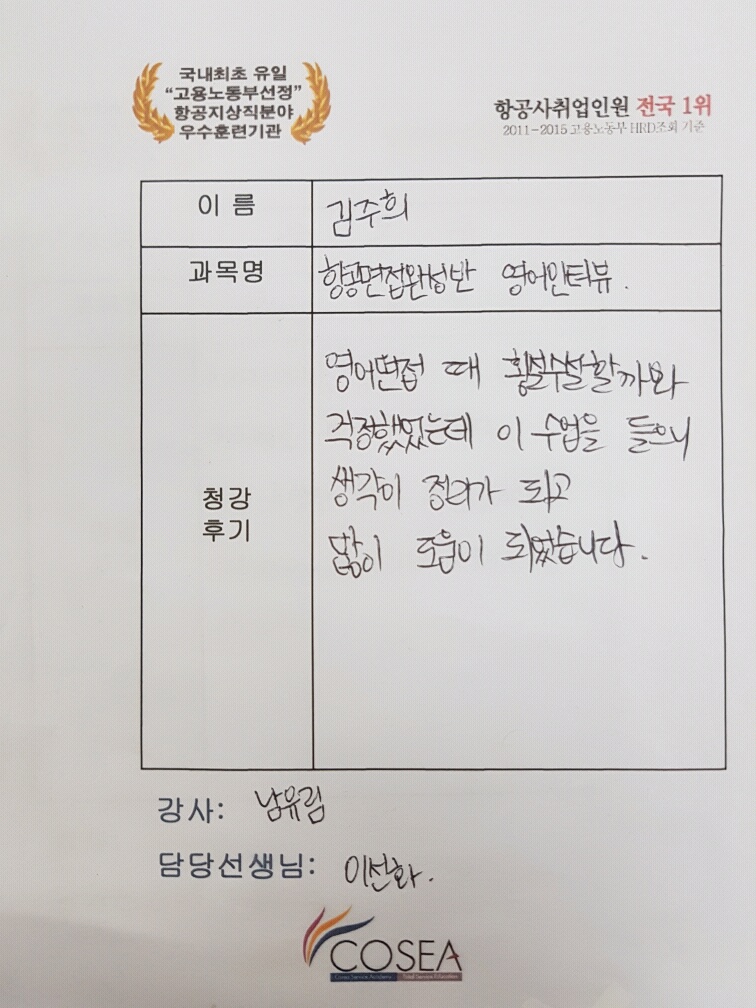 국내최초 유일
“고용노동부선정”
항공지상직분야
우수훈련기관
항공사취업인원 전국 1위
2011-2015 고용노동부 HRD조회 기준
이 름
김주희
과목명
항공면접완성반 영어인터뷰.
청강
후기
영어면접 때 횡설수설할까봐
걱정했었는데 이 수업을 들으니
생각이 정리가 되고
많이 도움이 되었습니다.
강사: 남유림
담당선생님: 이선화.
COSEA
Cosea Service Academy Total Service Education